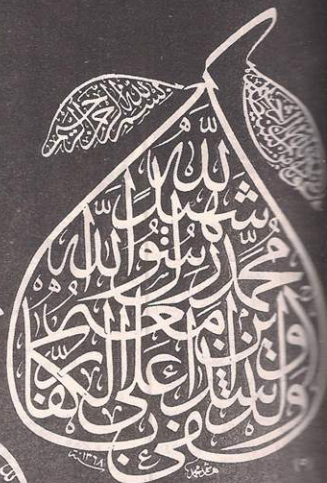 بسم الله الرحمن الرحيم
وكفى بالله شهيدا
محمد رسول الله
والذين معه
أشداء على الكفار
سنة ١٣٦٨